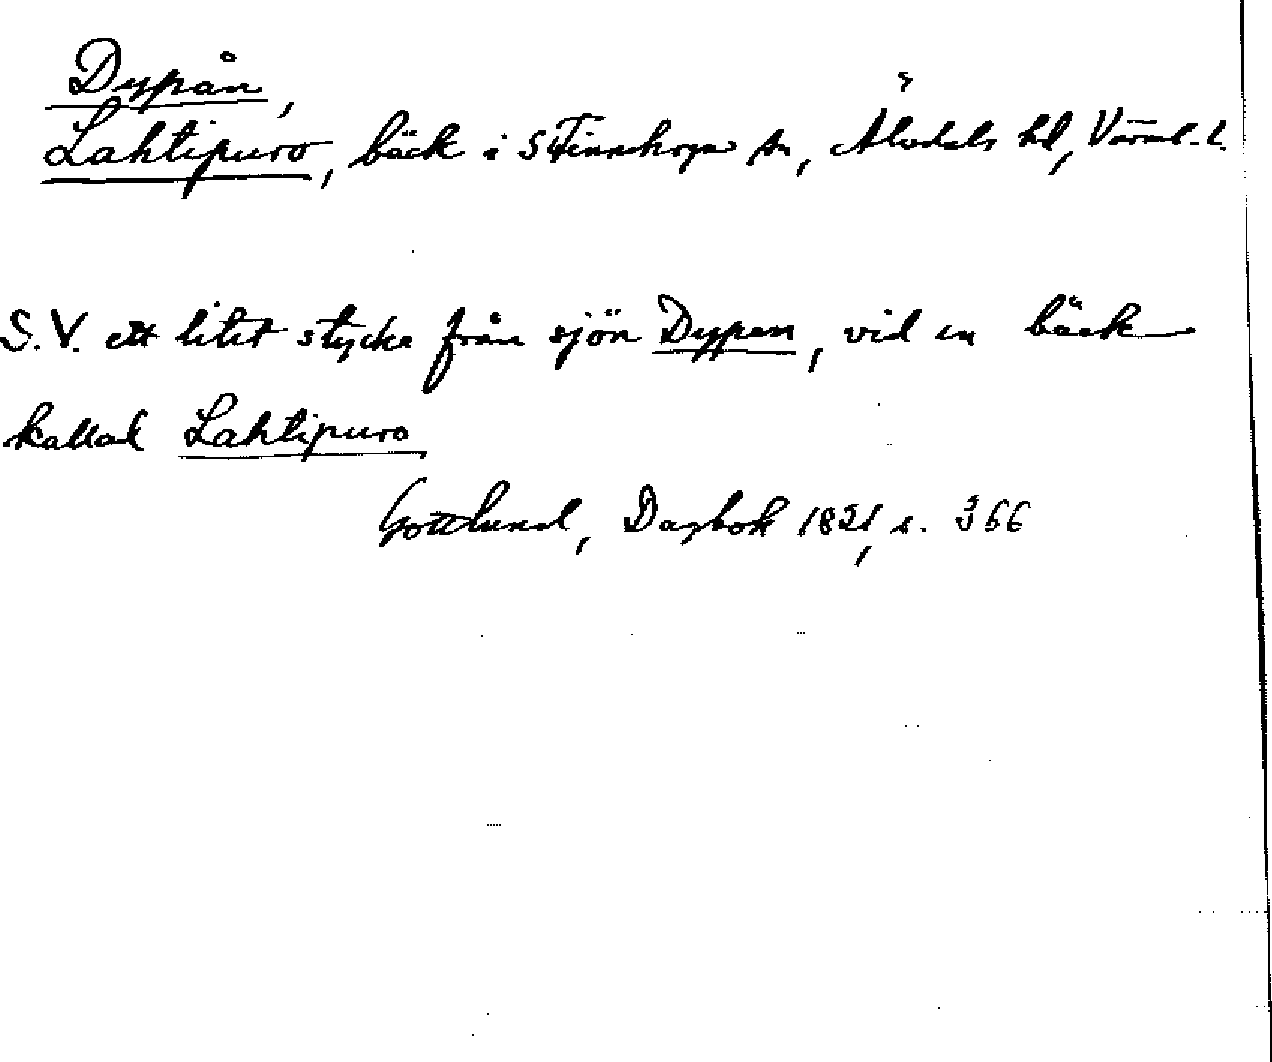 Dypån,
Lahtipuro, bäck i S Finnskoga sn, Älvdals hd, Värml. l.
S.V. ett litet stycke från sjön Dypen, vid en bäck
kallad Lahtipuro
Gottlund, Dagbok 1821, s. 366